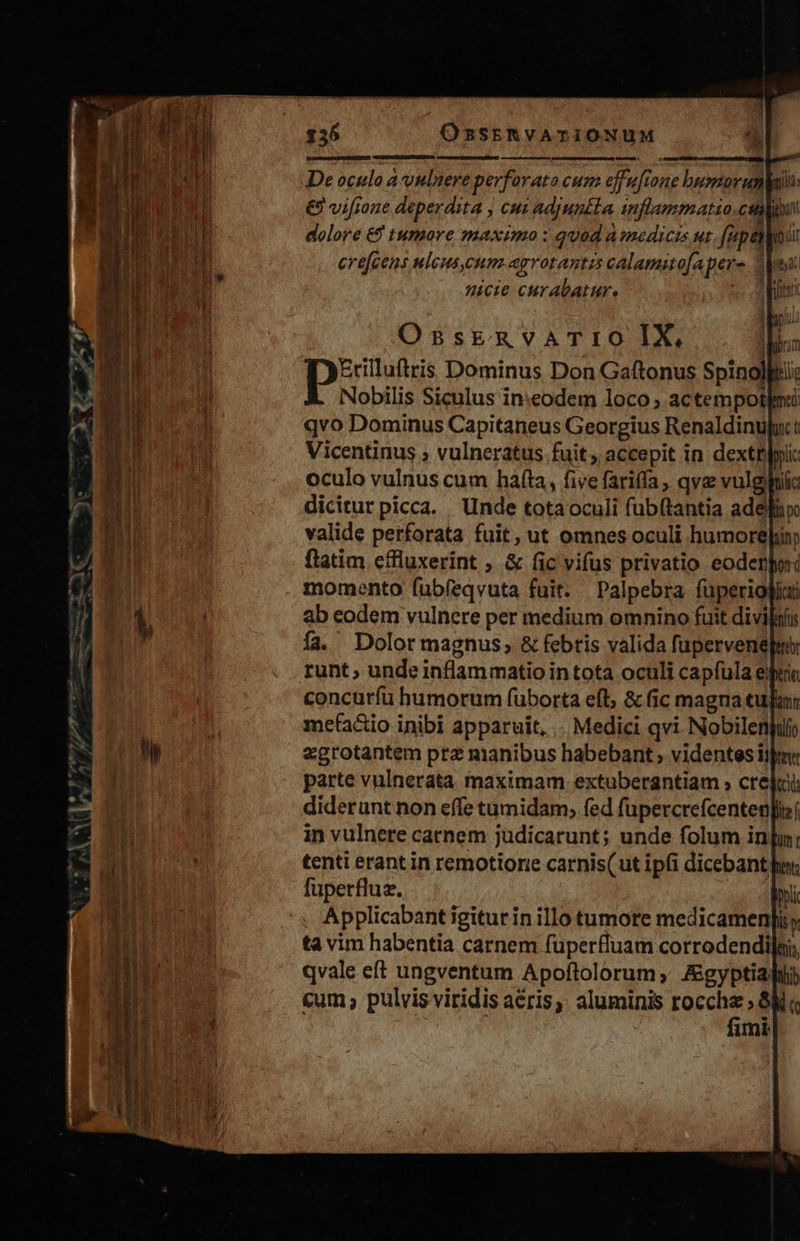 136 OBSERVATIONUM
De oculo à vulnere perforato cum effusione humorum
& visione deperdita, cui adjuncta inflammatio cum
dolore & tumore maximo: quod à medicis ut super
crescens ulcus, cum ægrotantis calamitosa per-
nicie curabatur.
OBSERVATIO IX.
PErillustris Dominus Don Gastonus Spinol
Nobilis Siculus in eodem loco, ac tempor
qvo Dominus Capitaneus Georgius Renaldinu
Vicentinus, vulneratus fuit, accepit in dextr
oculo vulnus cum hasta, sive farissa, qvæ vulg
dicitur picca. Unde tota oculi substantia ade
valide perforata fuit, ut omnes oculi humore
statim effluxerint, & sic visus privatio eodem
momento subseqvuta fuit. Palpebra superio
ab eodem vulnere per medium omnino fuit divi
sa. Dolor magnus, & febris valida supervene
runt, unde inflammatio in tota oculi capsula e
concursu humorum suborta est, & sic magna tu
mefactio inibi apparuit. Medici qvi Nobilem
ægrotantem præ manibus habebant, videntes i
parte vulnerata maximam extuberantiam, cre
diderunt non esse tumidam, sed supercrescentem
in vulnere carnem judicarunt; unde solum in
tenti erant in remotione carnis (ut ipsi dicebant
superfluæ.
Applicabant igitur in illo tumore medicamen
ta vim habentia carnem superfluam corrodendi
qvale est ungventum Apostolorum, Ægyptia
cum, pulvis viridis aëris, aluminis rocchæ, &
simi